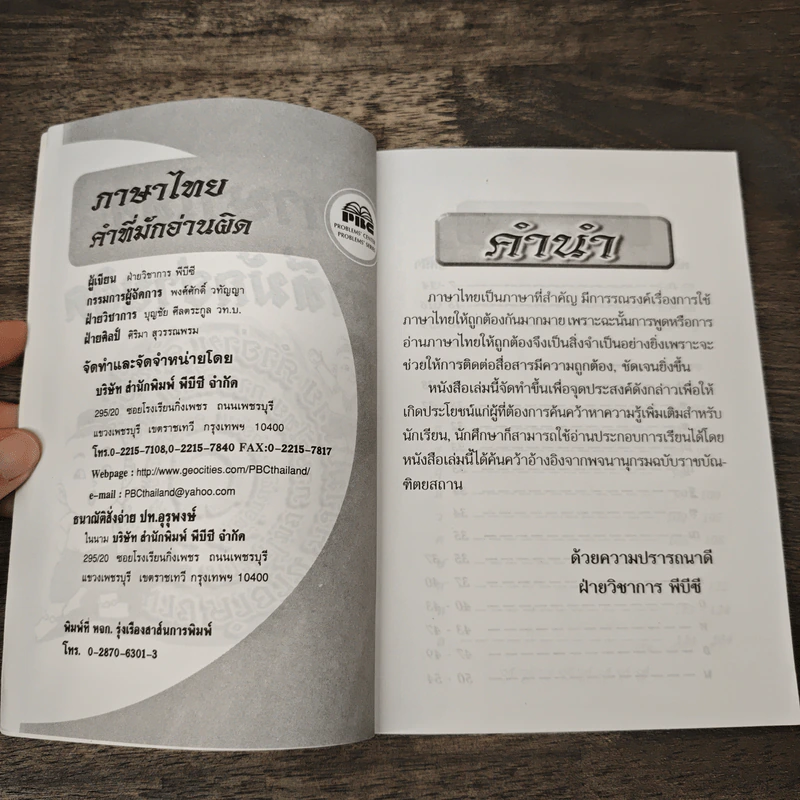 ภาษาไทย
คำที่มักอ่านผิด
PBC
PROBLEMS' CENTER
ผู้เขียน ฝ่ายวิชาการ พีบีซี
กรรมการผู้จัดการ พงศ์ศักดิ์ วทัญญา
ฝ่ายวิชาการ บุญชัย ศีลตระกูล วท.บ.
ฝ่ายศิลป์ ศิริมา สุวรรณพรม
จัดทำและจัดจำหน่ายโดย
บริษัท สำนักพิมพ์ พีบีซี จำกัด
295/20 ซอยโรงเรียนกิ่งเพชร ถนนเพชรบุรี
แขวงเพชรบุรี เขตราชเทวี กรุงเทพฯ 10400
โทร.0-2215-7108,0-2215-7840 FAX:0-2215-7817
Webpage : http://www.geocities.com/PBCthailand/
e-mail : PBCthailand@yahoo.com
ธนาณัติสั่งจ่าย ปท.อุรุพงษ์
ในนาม บริษัท สำนักพิมพ์ พีบีซี จำกัด
295/20 ซอยโรงเรียนกิ่งเพชร ถนนเพชรบุรี
แขวงเพชรบุรี เขตราชเทวี กรุงเทพฯ 10400
พิมพ์ที่ หจก. รุ่งเรืองสาส์นการพิมพ์
โทร. 0-2870-6301-3
คำนำ
ภาษาไทยเป็นภาษาที่สำคัญ มีการรณรงค์เรื่องการใช้
ภาษาไทยให้ถูกต้องกันมากมาย เพราะฉะนั้นการพูดหรือการ
อ่านภาษาไทยให้ถูกต้องจึงเป็นสิ่งจำเป็นอย่างยิ่งเพราะจะ
ช่วยให้การติดต่อสื่อสารมีความถูกต้อง, ชัดเจนยิ่งขึ้น
หนังสือเล่มนี้จัดทำขึ้นเพื่อจุดประสงค์ดังกล่าวเพื่อให้
เกิดประโยชน์แก่ผู้ที่ต้องการค้นคว้าหาความรู้เพิ่มเติมสำหรับ
นักเรียน, นักศึกษาก็สามารถใช้อ่านประกอบการเรียนได้โดย
หนังสือเล่มนี้ได้ค้นคว้าอ้างอิงจากพจนานุกรมฉบับราชบัณ-
ฑิตยสถาน
ด้วยความปรารถนาดี
ฝ่ายวิชาการ พีบีซี